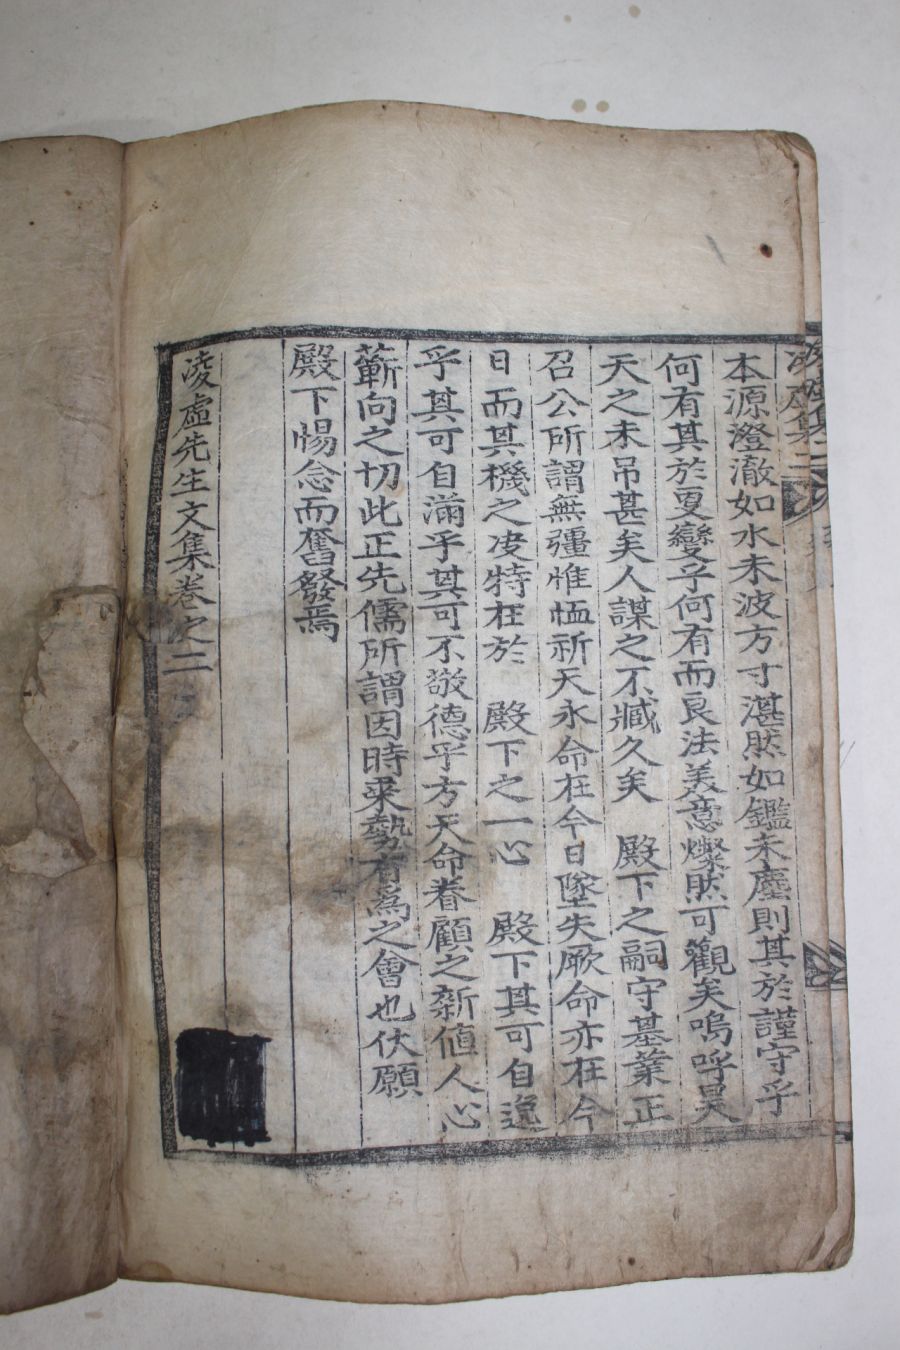 本源澄澈如水未波方寸湛然如鑑未塵則其於謹守乎
何有其於更變乎何有而良法美意燦然可觀矣嗚呼昊
天之未吊甚矣人謀之不臧久矣 殿下之嗣守基業正
召公所謂無疆惟恤祈天永命在今日墜失厥命亦在今
日而其機之決特在於 殿下之一心 殿下其可自逸
乎其可自滿乎其可不敬德乎方天命眷顧之新値人心
蘄向之切此正先儒所謂因時乘勢有爲之會也伏願
殿下惕念而奮發焉
凌虛先生文集卷之二